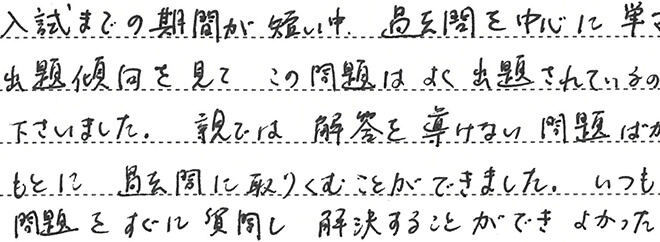 入試までの期間が短い中、過去問を中心に単
出題傾向を見て この問題はよく出題されているの
下さいました。 親では 解答を導けない 問題ばか
もとに 過去問に取りくむことができました。いつも
問題をすぐに質問し 解決することができ よかった